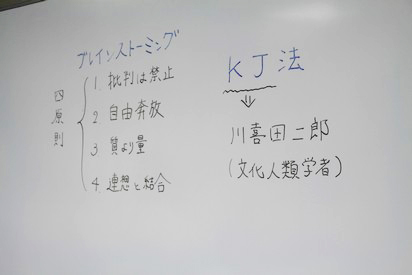 ブレインストーミング
四原則
1. 批判は禁止
2 自由奔放
3 質より量
4. 連想と結合
KJ法
⇓
川喜田二郎
(文化人類学者)